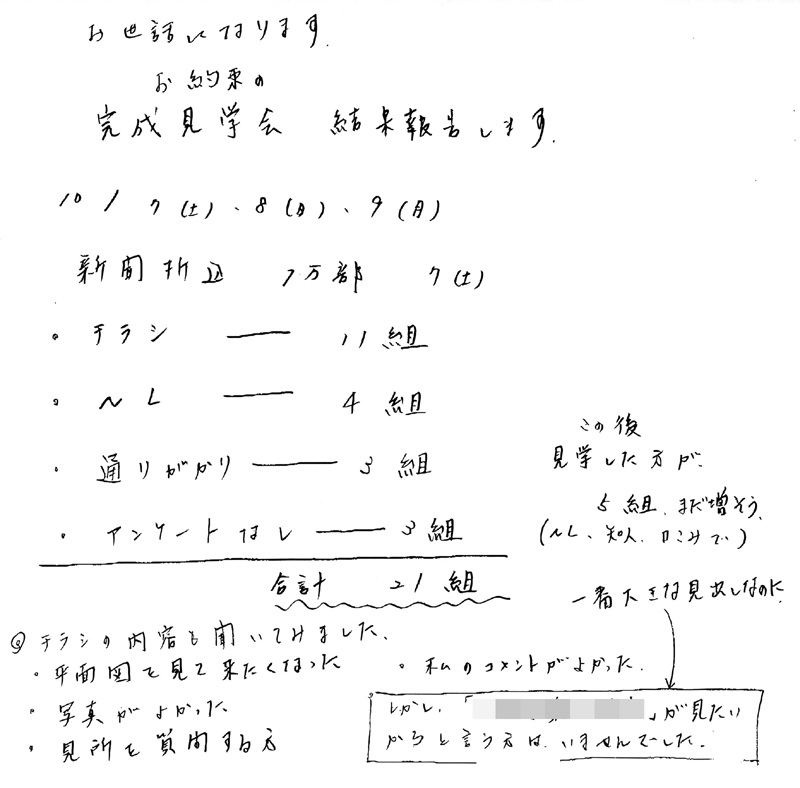 お世話になります。
お約束の
完成見学会 結果報告します。
10/7(土)、8(日)、9(月)
新聞折込 7万部 7(土)
・チラシ ── 11組
・NL ── 4組
・通りがかり ── 3組
・アンケートなし ── 3組
合計 21組
この後
見学した方が、
5組、まだ増そう。
(NL、知人、口こみで)
一番大きな見出しなのに
◎チラシの内容も聞いてみました。
・平面図を見て来たくなった
・写真がよかった
・見所を質問する方
・私のコメントがよかった。
しかし、「 」が見たい
からと言う方は、いませんでした。